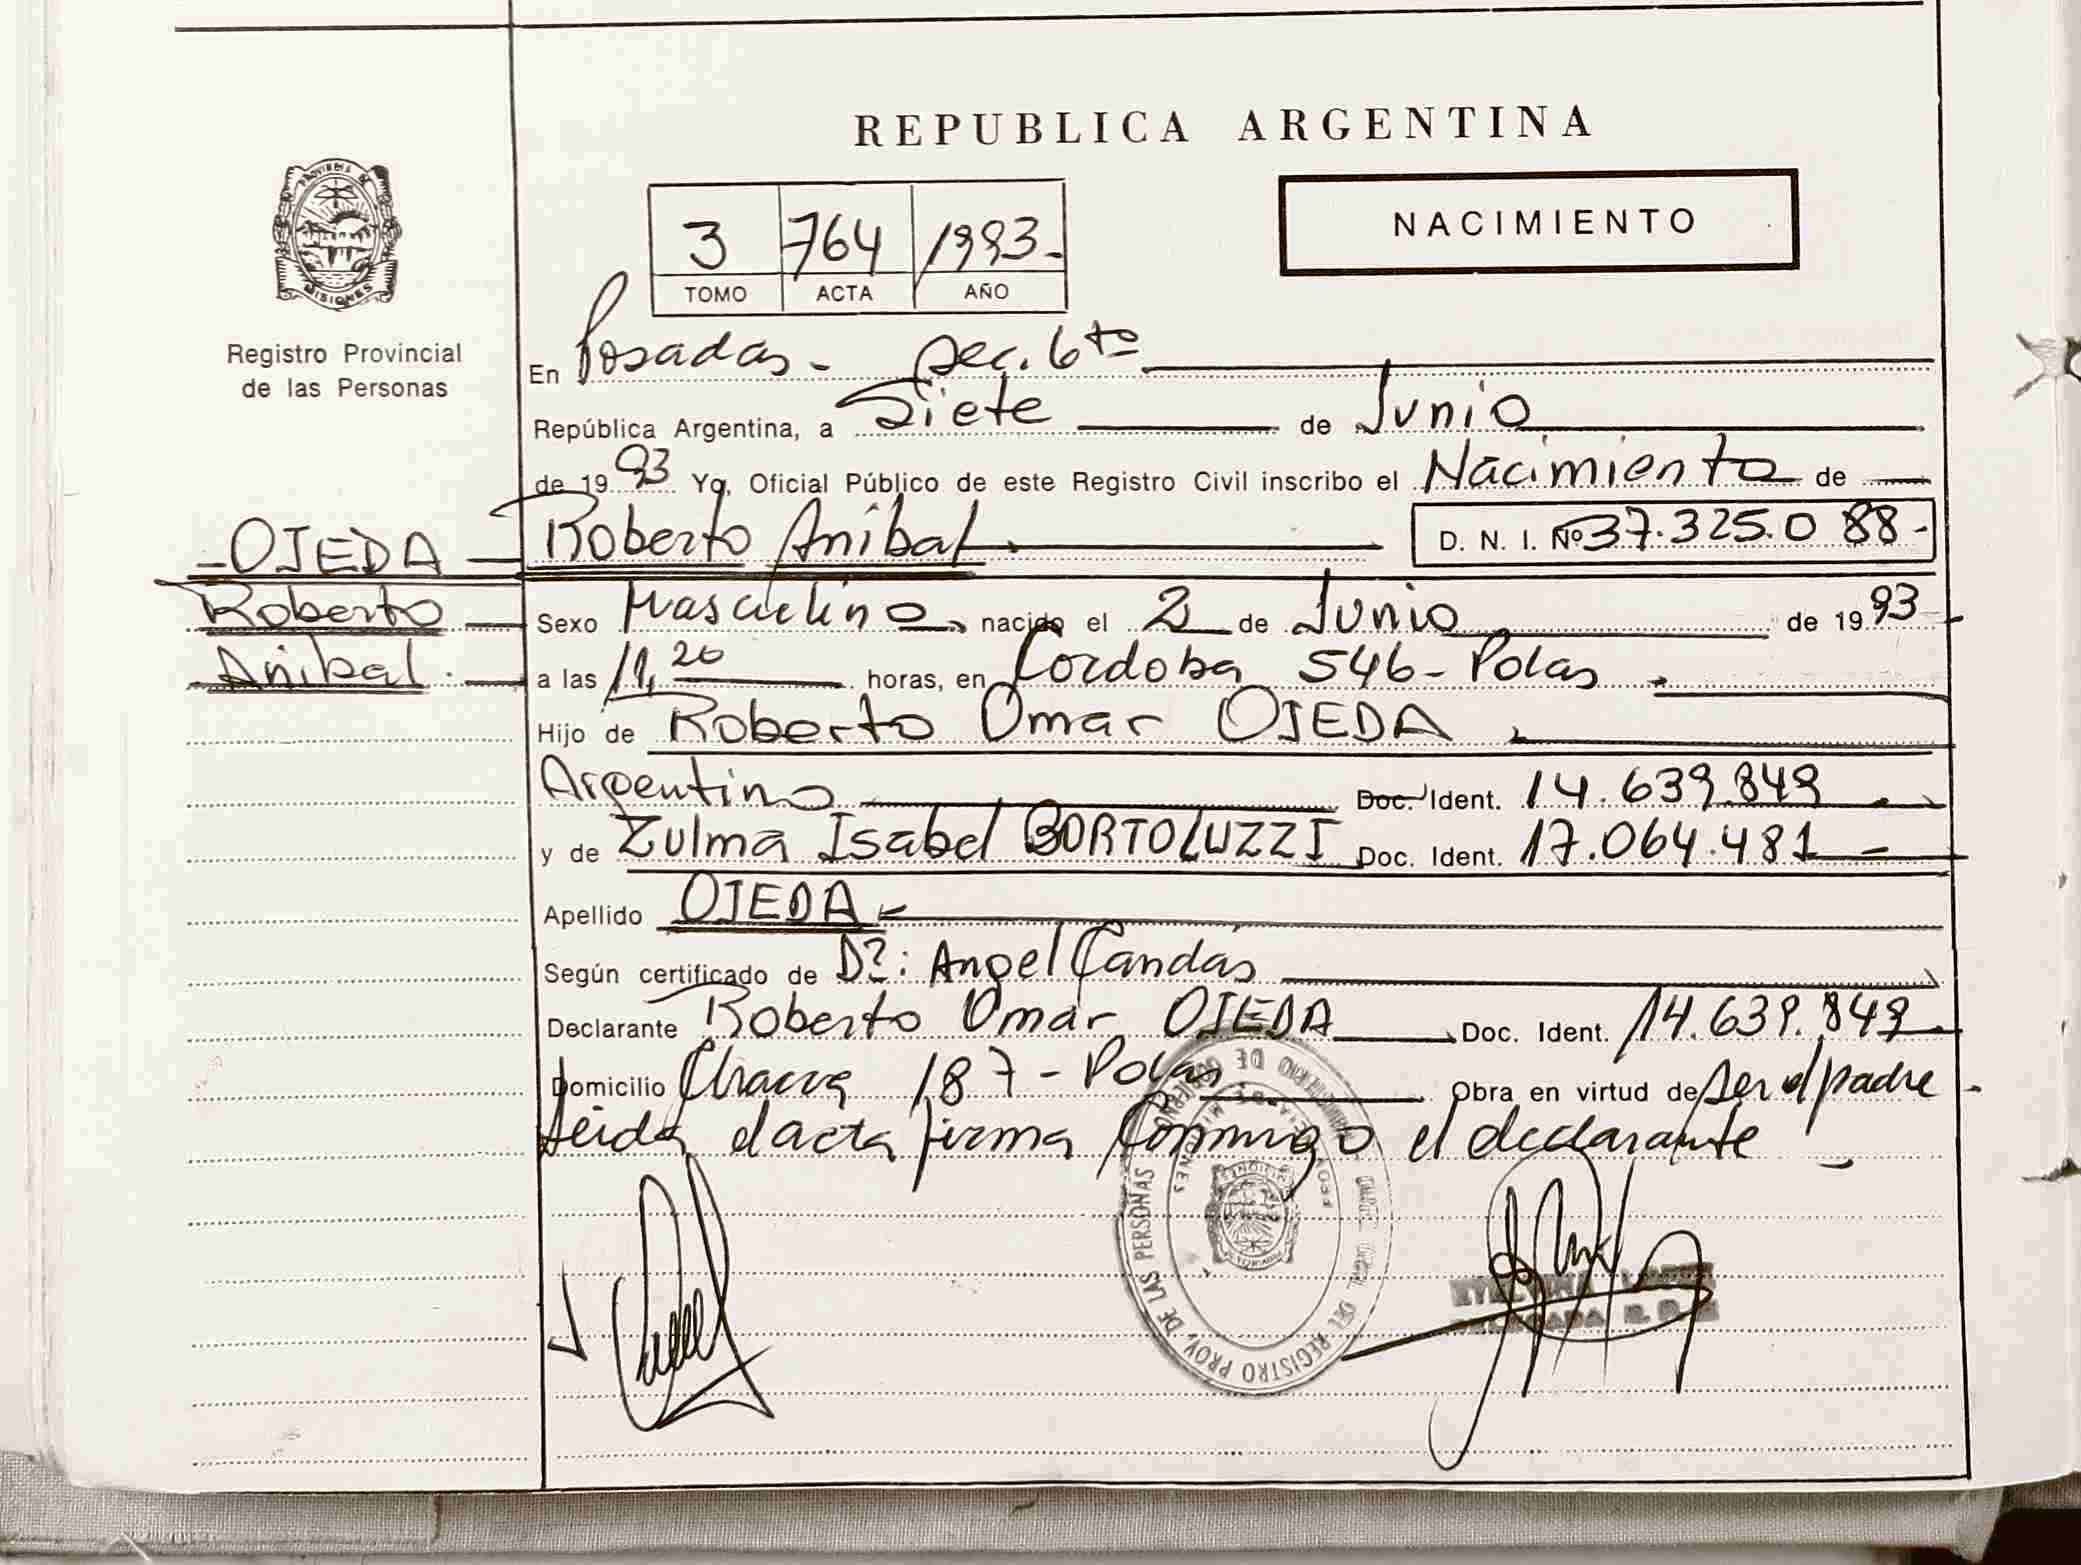 REPUBLICA ARGENTINA
PROVINCIA DE MISIONES
Registro Provincial
de las Personas
3 764 1993-
TOMO ACTA AÑO
NACIMIENTO
En Posadas - Sec. 6ta
República Argentina, a Siete de Junio
de 1993 Yo, Oficial Público de este Registro Civil inscribo el Nacimiento de
- OJEDA - Roberto Anibal. D. N. I. Nº 37.325.088-
Roberto
Anibal.
Sexo Masculino, nacido el 2 de Junio de 1993-
a las 11,20 horas, en Cordoba 546- Pdas.
Hijo de Roberto Omar OJEDA.
Argentino Doc. Ident. 14.639.849.
y de Zulma Isabel BORTOLUZZI Doc. Ident. 17.064.481-
Apellido OJEDA.-
Según certificado de Dr: Angel Candas
Declarante Roberto Omar OJEDA Doc. Ident. 14.639.849.
Domicilio Chacra 187- Pdas Obra en virtud de ser el padre -
Leida el acta firma conmigo el declarante -
DEL REGISTRO PROV. DE LAS PERSONAS
MISIONES